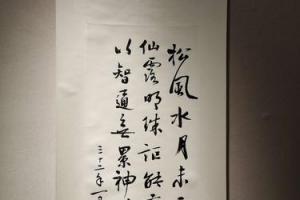 松風水月未
仙露明珠詎能
以智通無累神
三十二年一